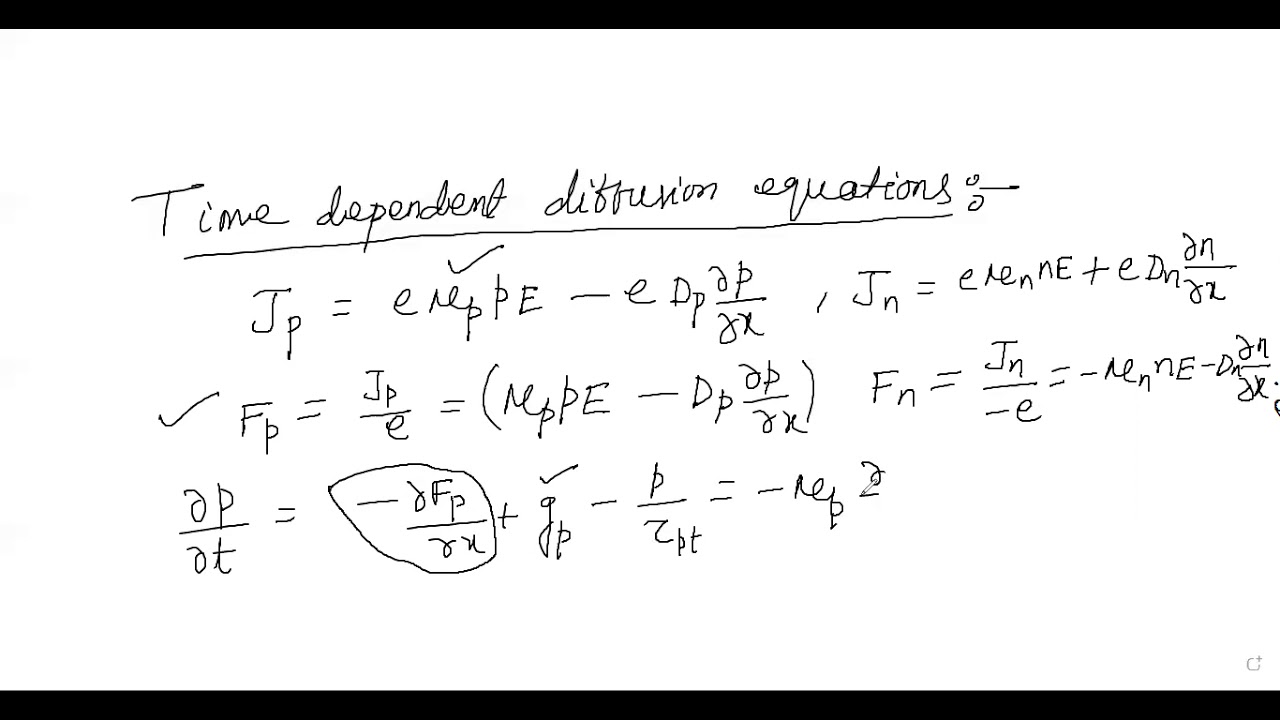 Time dependent diffusion equations :-
J_p = e μ_p p E - e D_p ∂p/∂x , J_n = e μ_n n E + e D_n ∂n/∂x
✓ F_p = J_p/e = (μ_p p E - D_p ∂p/∂x) F_n = J_n/-e = - μ_n n E - D_n ∂n/∂x .
∂p/∂t = - ∂F_p/∂x + g_p - p/τ_pt = - μ_p ∂